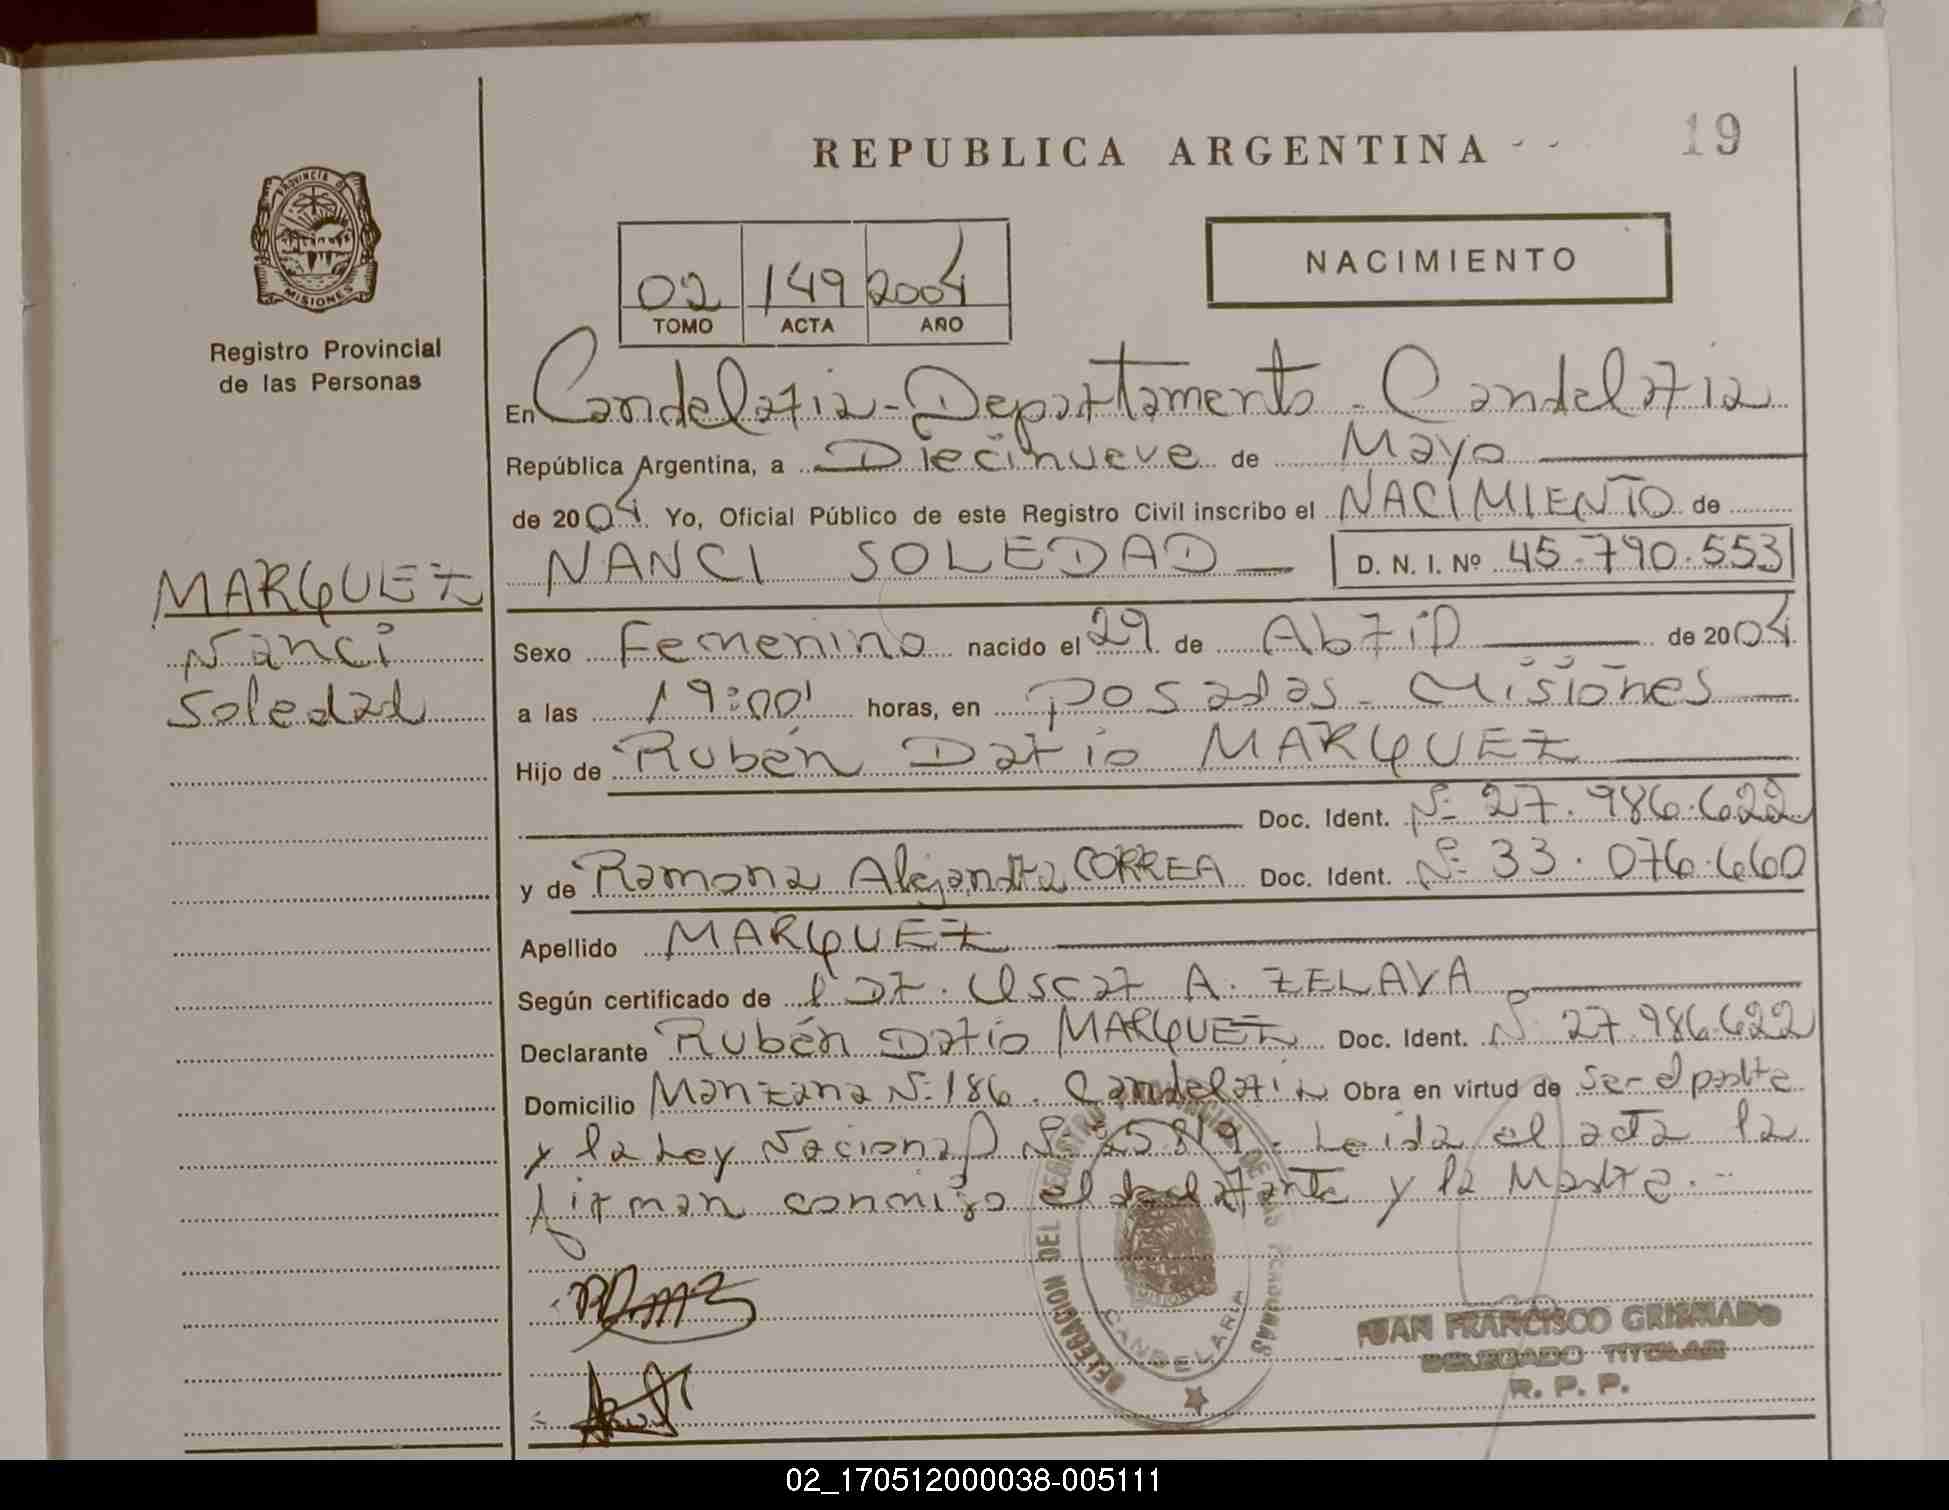 REPUBLICA ARGENTINA
19
PROVINCIA DE
MISIONES
Registro Provincial
de las Personas
NACIMIENTO
02 149 2004
TOMO ACTA AÑO
En Candelaria - Departamento - Candelaria
República Argentina, a Diecinueve de Mayo
de 2004 Yo, Oficial Público de este Registro Civil inscribo el NACIMIENTO de
NANCI SOLEDAD D. N. I. Nº 45.790.553
MARQUEZ
Nanci
Soledad
Sexo Femenino nacido el 29 de Abril de 2004
a las 19:00' horas, en Posadas - Misiones
Hijo de Rubén Darío MARQUEZ
Doc. Ident. Nº 27.986.622
y de Ramona Alejandra CORREA Doc. Ident. Nº 33.076.660
Apellido MARQUEZ
Según certificado de Dr. Oscar A. ZELAYA
Declarante Rubén Darío MARQUEZ Doc. Ident. Nº 27.986.622
Domicilio Manzana Nº 186. Candelaria Obra en virtud de ser el padre
y la Ley Nacional Nº 25.819. Leida el acta la
firman conmigo el declarante y la Madre.-
DELEGACION DEL REGISTRO PROVINCIAL DE LAS PERSONAS
MISIONES
CANDELARIA
JUAN FRANCISCO GRISMADO
DELEGADO TITULAR
R. P. P.
02_170512000038-005111